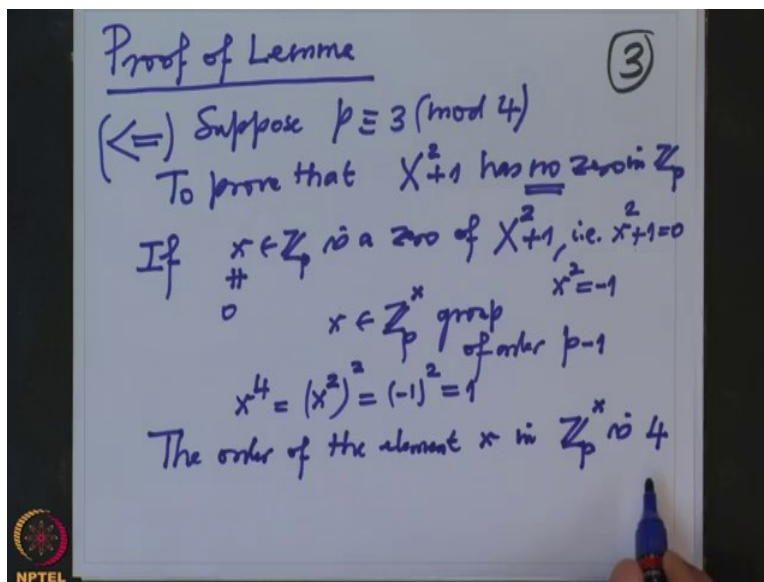 Proof of Lemma
③
(<=) Suppose p ≡ 3 (mod 4)
To prove that X²+1 has no zero in ℤₚ
If x ∈ ℤₚ is a zero of X²+1, i.e. x²+1=0
≠
0
x² = -1
x ∈ ℤₚˣ group
of order p-1
x⁴ = (x²)² = (-1)² = 1
The order of the element x in ℤₚˣ is 4
NPTEL